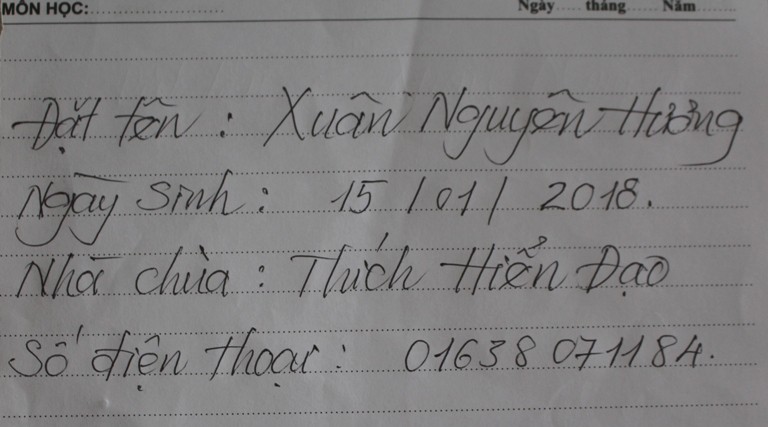 MÔN HỌC:
Ngày..... tháng..... Năm
Đặt tên : Xuân Nguyên Hương
Ngày sinh : 15 / 01 / 2018.
Nhà chùa : Thích Hiển Đạo
Số điện thoại : 01638 071184.